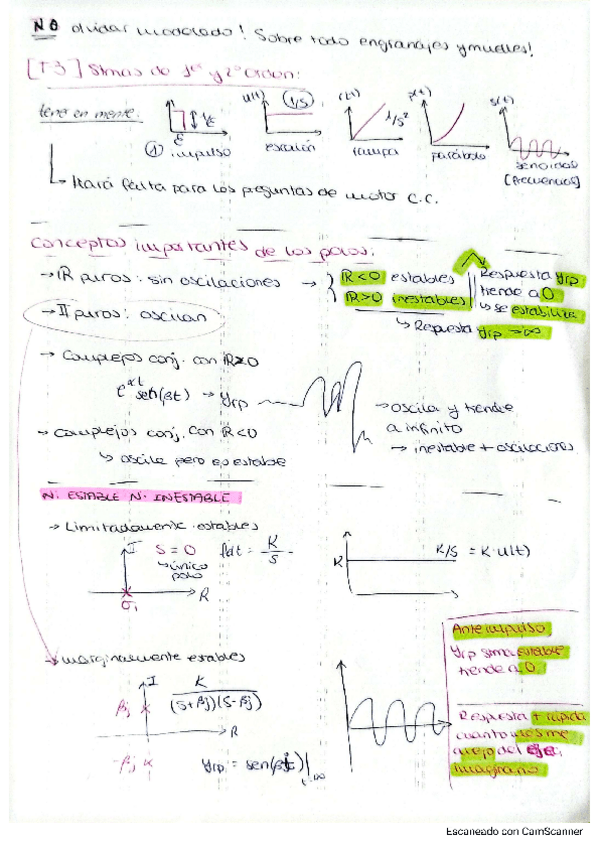 NO olvidar modelado! Sobre todo engranajes y muelles!
[T3] Stmas de 1er y 2º orden:
tener en mente:
u(t)
1/s
r(t)
1/s²
p(t)
s(t)
① impulso
escalón
rampa
parábola
senoidal
[frecuencias]
↳ Hará falta para las preguntas de motor C.C.
Conceptos importantes de los polos:
→ IR puros: sin oscilaciones → { IR<0 estables
IR>0 inestables
Respuesta yrp
tiende a 0
↳ se estabiliza
↳ Respuesta yrp → ∞
→ II puros: oscilan
→ Complejos conj. con IR>0
e^αt sen(βt) → yrp
→ oscila y tiende
a infinito
→ inestable + oscilaciones
→ Complejos conj. con IR<0
↳ oscila pero es estable
NI ESTABLE NI INESTABLE
→ Limitadamente estables
I
S = 0
↳ único
polo
fdt = K/S
R
σ1
K
K/S = K·u(t)
→ marginalmente estables
I
βj
K
(S+βj)(S-βj)
R
-βj
yrp = sen(βt)|t→∞
Ante impulso,
yrp stma estable
tiende a 0
Respuesta + rápida
cuanto más me
alejo del eje
imaginario
Escaneado con CamScanner